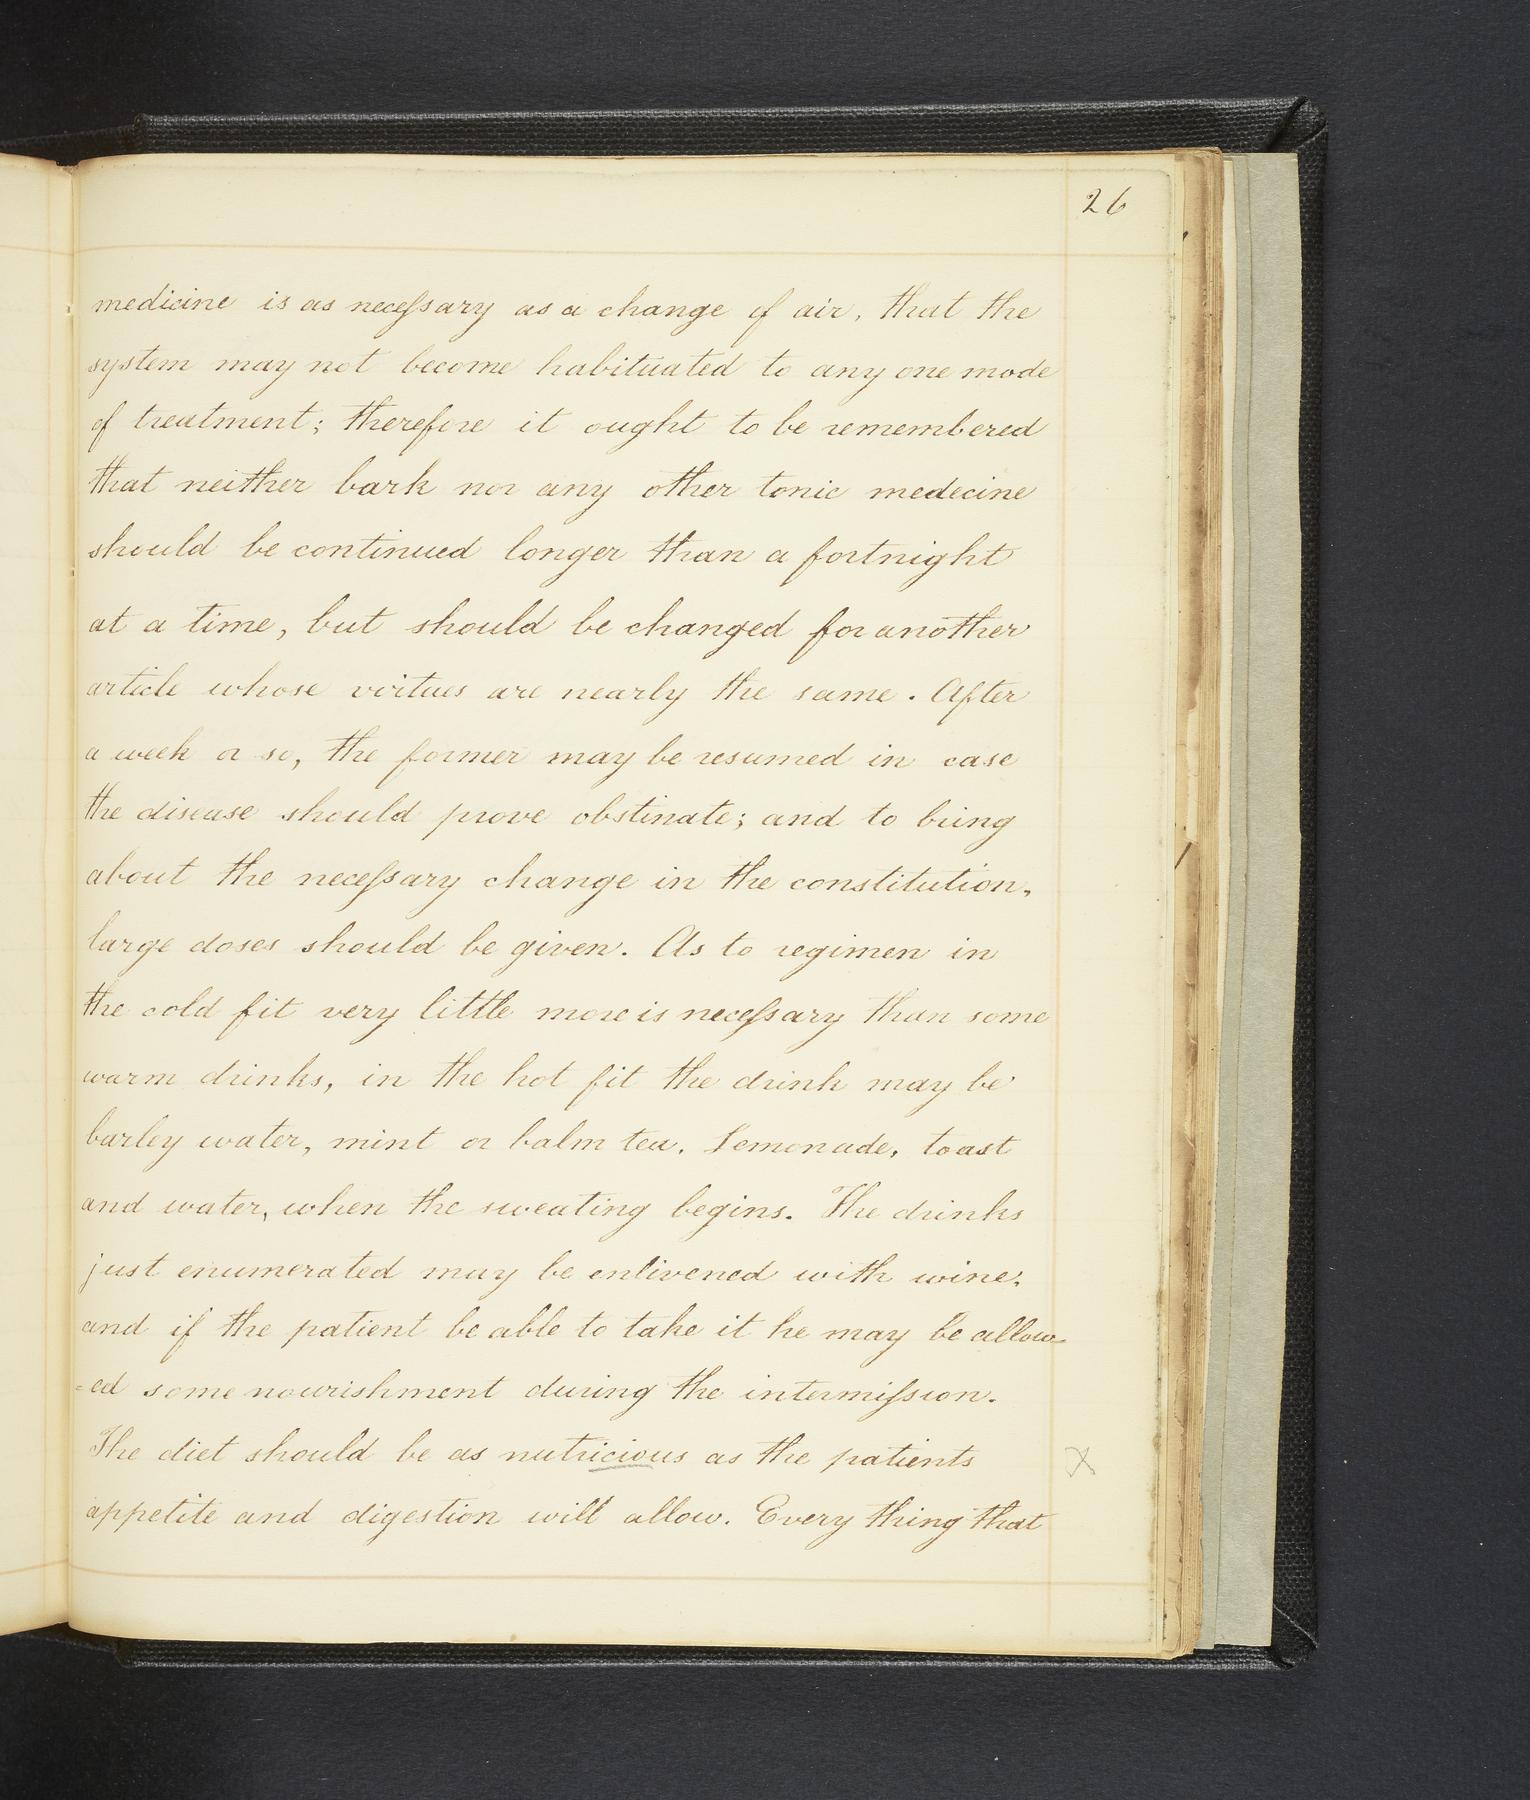 26
medicine is as neceſsary as a change of air, that the
system may not become habituated to any one mode
of treatment; therefore it ought to be remembered
that neither bark nor any other tonic medecine
should be continued longer than a fortnight
at a time, but should be changed for another
article whose virtues are nearly the same. After
a week or so, the former may be resumed in case
the disease should prove obstinate; and to bring
about the neceſsary change in the constitution,
large doses should be given. As to regimen in
the cold fit very little more is neceſsary than some
warm drinks, in the hot fit the drink may be
barley water, mint or balm tea. Lemonade, toast
and water, when the sweating begins. The drinks
just enumerated may be enlivened with wine;
and if the patient be able to take it he may be allow-
=ed some nourishment during the intermiſsion.
The diet should be as nutricious as the patients X
appetite and digestion will allow. Every thing that